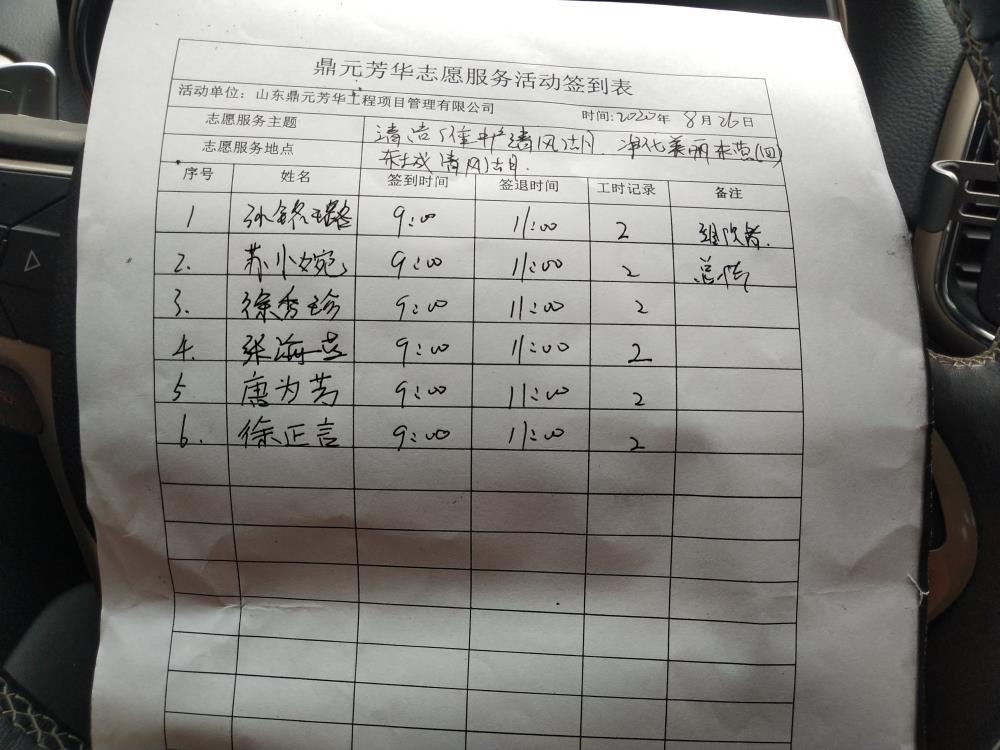 鼎元芳华志愿服务活动签到表
活动单位：山东鼎元芳华工程项目管理有限公司 时间：2020年 8月26日
志愿服务主题 清风湖 净化美丽 (四)
志愿服务地点 东城清风湖
序号 姓名 签到时间 签退时间 工时记录 备注
1 孙铭璐 9:00 11:00 2 组织者
2. 苏小婉 9:00 11:00 2
3. 徐秀珍 9:00 11:00 2
4. 张海燕 9:00 11:00 2
5 唐为芳 9:00 11:00 2
6. 徐正言 9:00 11:00 2